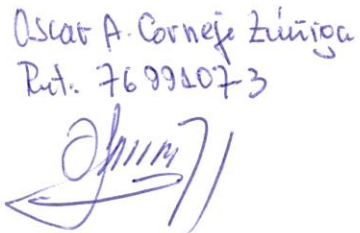 Oscar A. Cornejo Zúñiga
Rut. 7699107-3